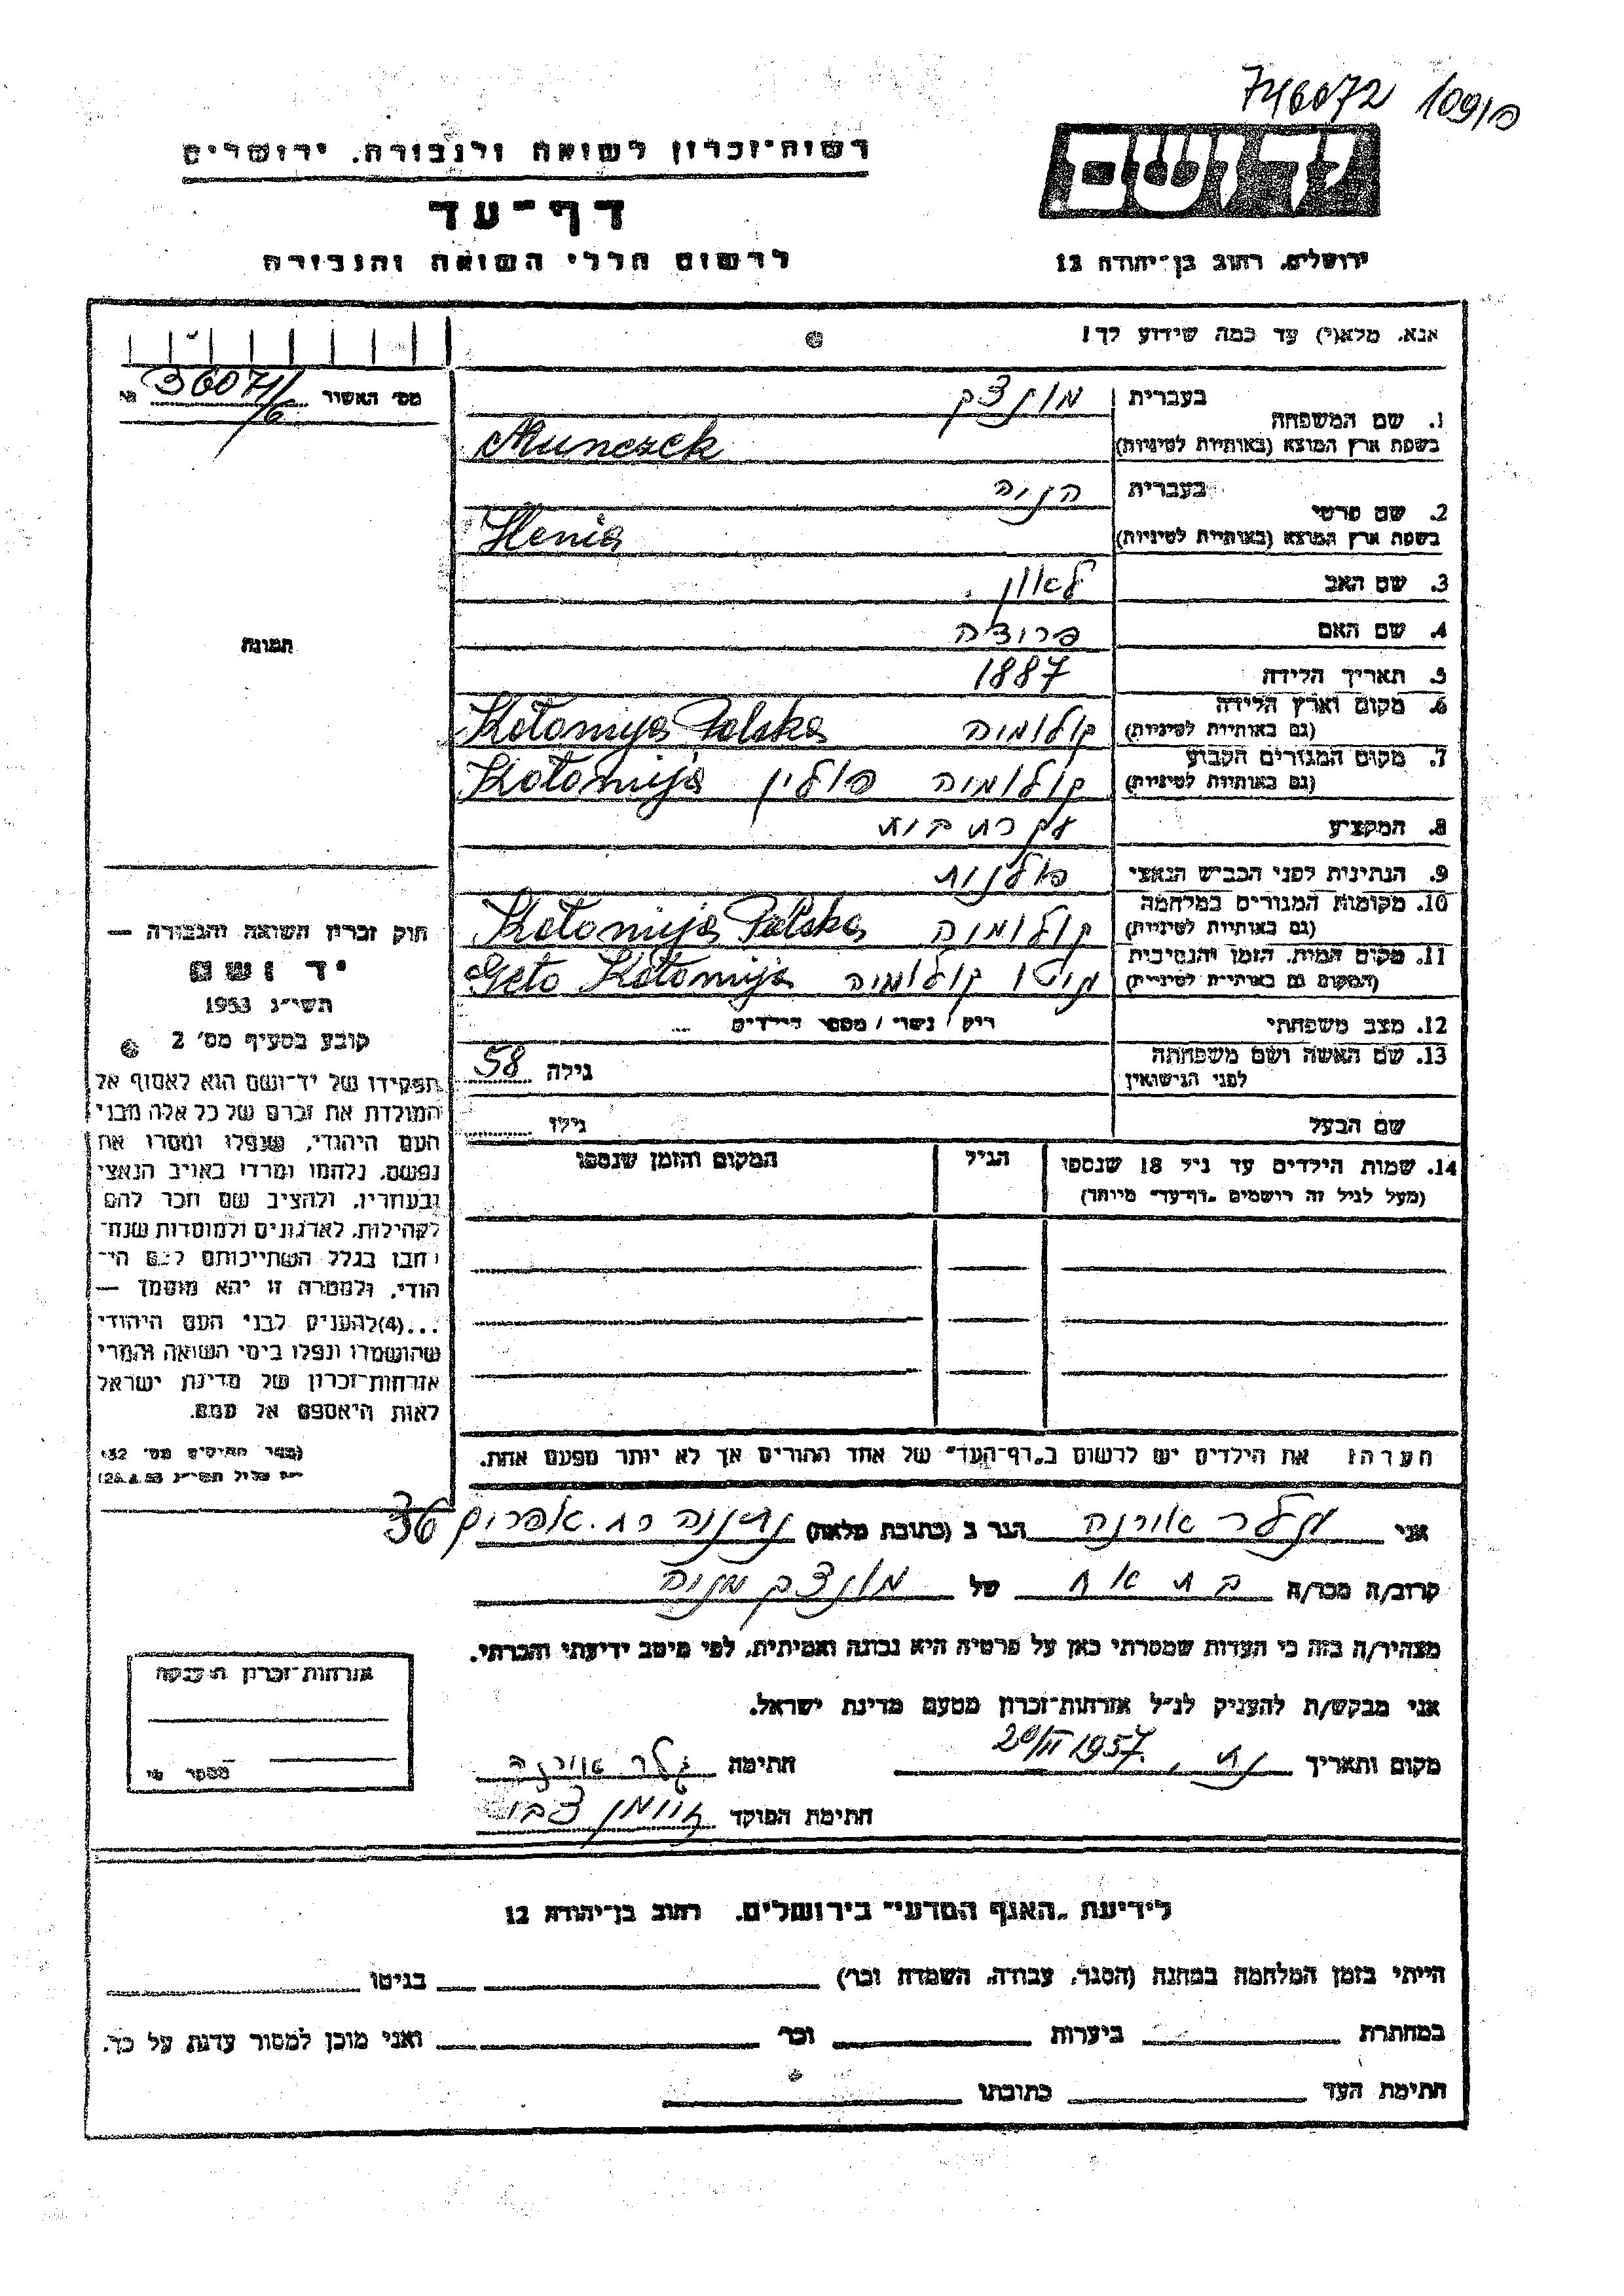 746072 109/פ
רשות־זכרון לשואה ולגבורה, ירושלים
יד ושם
דף־עד
לרשום חללי השואה והגבורה
ירושלים, רחוב בן־יהודה 12
אנא, מלא(י) עד כמה שידוע לך!
מס' האשור 36071/6
1. שם המשפחה
בעברית מונצק
בשפת ארץ המוצא (באותיות לטיניות) Munczek
2. שם פרטי
בעברית הניה
בשפת ארץ המוצא (באותיות לטיניות) Henia
3. שם האב לאון
4. שם האם פרוצה
5. תאריך הלידה 1887
6. מקום וארץ הלידה (גם באותיות לטיניות) קולומיה Kołomyja Polska
7. מקום המגורים הקבוע (גם באותיות לטיניות) קולומיה פולין Kołomyja
8. המקצוע עקרת בית
9. הנתינות לפני הכבוש הנאצי פולנית
10. מקומות המגורים במלחמה (גם באותיות לטיניות) קולומיה Kołomyja Polska
11. מקום המות, הזמן והנסיבות (המקום גם באותיות לטיניות) גיטו קולומיה Geto Kołomyja
12. מצב משפחתי רווק / נשוי / מספר הילדים ...
13. שם האשה ושם משפחתה לפני הנישואין גילה 58
שם הבעל גילו
14. שמות הילדים עד גיל 18 שנספו הגיל המקום והזמן שנספו
(מעל לגיל זה רושמים "דף־עד" מיוחד)
הערה: את הילדים יש לרשום ב"דף־העד" של אחד ההורים אך לא יותר מפעם אחת.
תמונה
חוק זכרון השואה והגבורה —
יד ושם
תשי"ג 1953
קובע בסעיף מס' 2
תפקידו של יד־ושם הוא לאסוף אל
המולדת את זכרם של כל אלה מבני
העם היהודי, שנפלו ומסרו את
נפשם, נלחמו ומרדו באויב הנאצי
ובעוזריו, ולהציב שם וזכר להם
לקהילות, לארגונים ולמוסדות שנח־
רבו בגלל השתייכותם לעם הי־
הודי, ולמטרה זו יהא מוסמך —
...(4)להעניק לבני העם היהודי
שהושמדו ונפלו בימי השואה והמרי
אזרחות־זכרון של מדינת ישראל
לאות היאספם אל עמם.
(ספר החוקים מס' 132
אני גלר אורנה הגר ב (כתובת מלאה) נתניה רח. אפרים 36
קרוב/ה מכר/ה בת אח של מונצק הניה
מצהיר/ה בזה כי העדות שמסרתי כאן על פרטיה היא נכונה ואמיתית, לפי מיטב ידיעתי והכרתי.
אני מבקש/ת להעניק לנ"ל אזרחות־זכרון מטעם מדינת ישראל.
מקום ותאריך 20/II 1957 חתימה גלר אורנה
חתימת הפוקד
אזרחות־זכרון הוענקה
מספר
לידיעת "האגף המדעי" בירושלים, רחוב בן־יהודה 12
הייתי בזמן המלחמה במחנה (הסגר, עבודה, השמדה וכו') בגיטו
במחתרת ביערות וכו' ואני מוכן למסור עדות על כך.
חתימת העד כתובתו